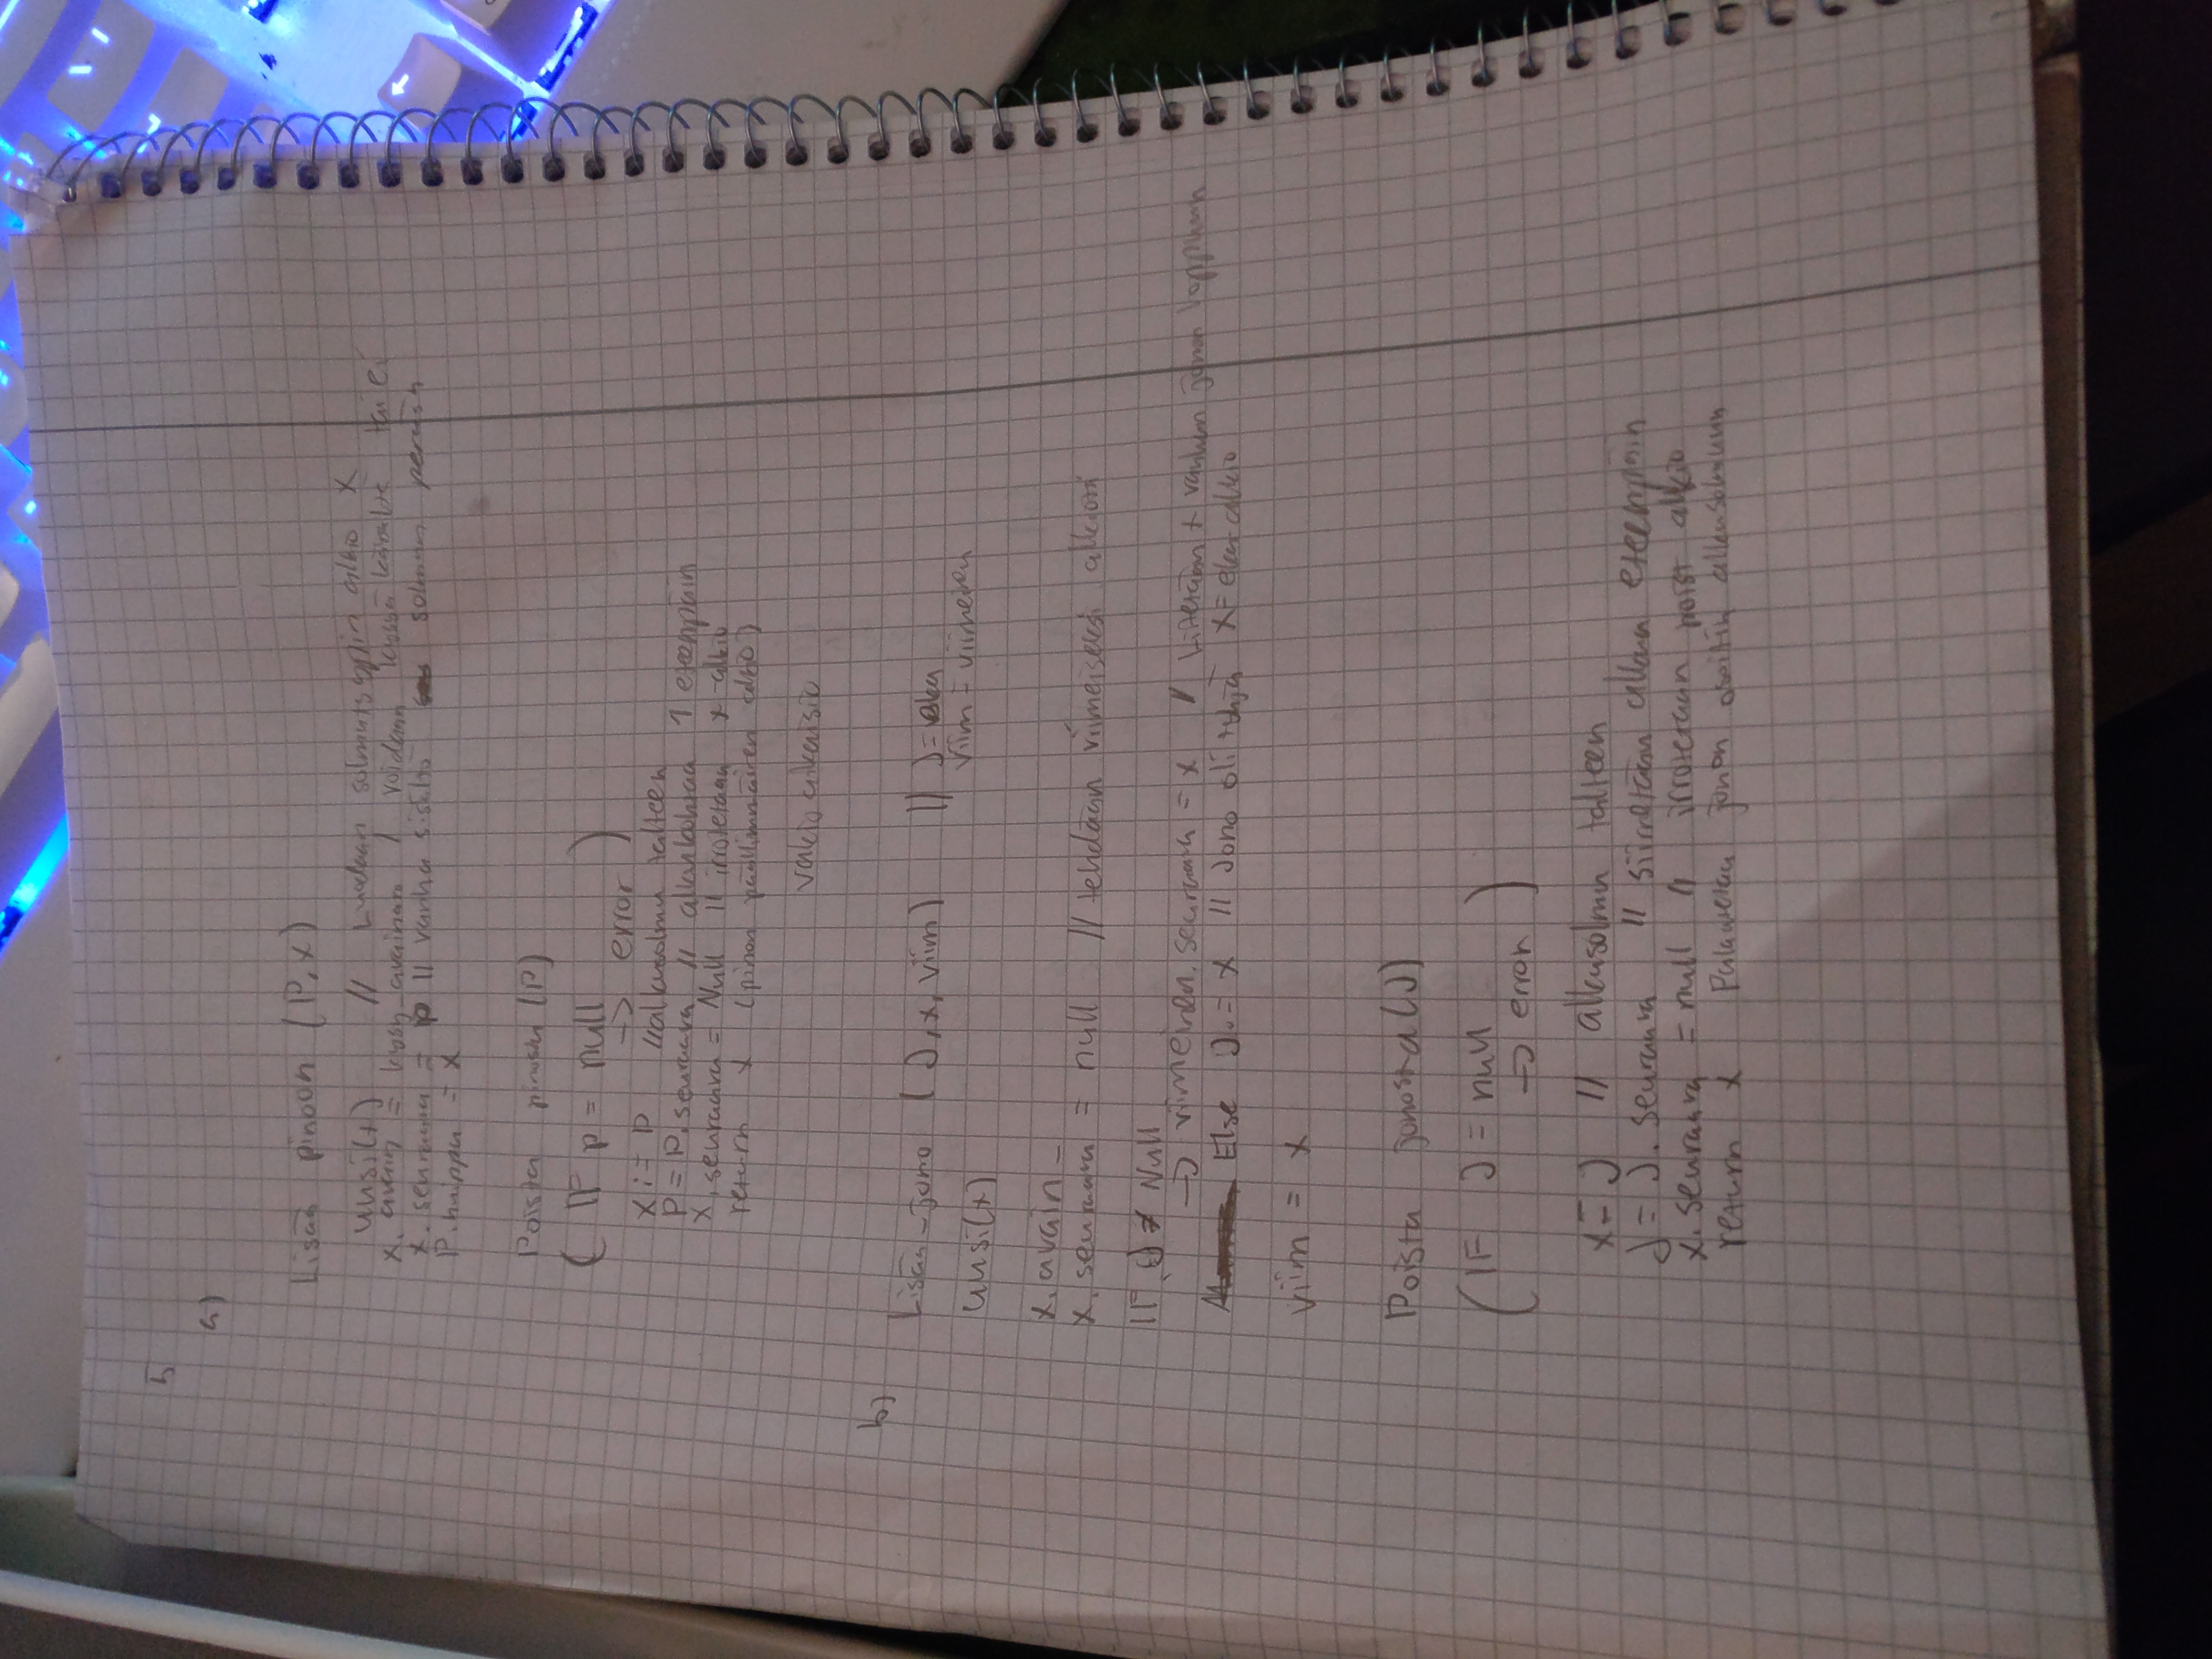 5
a)
Lisää pinoon (P,x)
uusi(x) // Luodaan solmutyyppin alkio x
x.avain = // voidaan lisätä tai ei
x.seuraava = p // vanha sisältö solmun perään
P.huippu = x
Poista pinosta (P)
(IF p = null
→ error)
x := P // alkusolmu talteen
P = P.seuraava // alkukohtaa 1 eteenpäin
x.seuraava = Null // irrotetaan x-alkio
return x (pinon päällimmäinen alkio)
vakioaikaisia
b)
Lisää-jono (J,x,viim) // J = eka
viim = viimeinen
uusi(x)
x.avain =
x.seuraava = null // tehdään viimeiseksi alkioksi
IF J ≠ Null
→ viimeinen.seuraava = x // Liitetään x vanhan jonon loppuun
Else J = x // Jono oli tyhjä x = eka alkio
viim = x
Poista jonosta(J)
(IF J = null
→ error)
x = J // alkusolmu talteen
J = J.seuraava // siirretään alkua eteenpäin
x.seuraava = null // irrotetaan pois alkio
return x Palautetaan jonon osoitin alkusolmuun